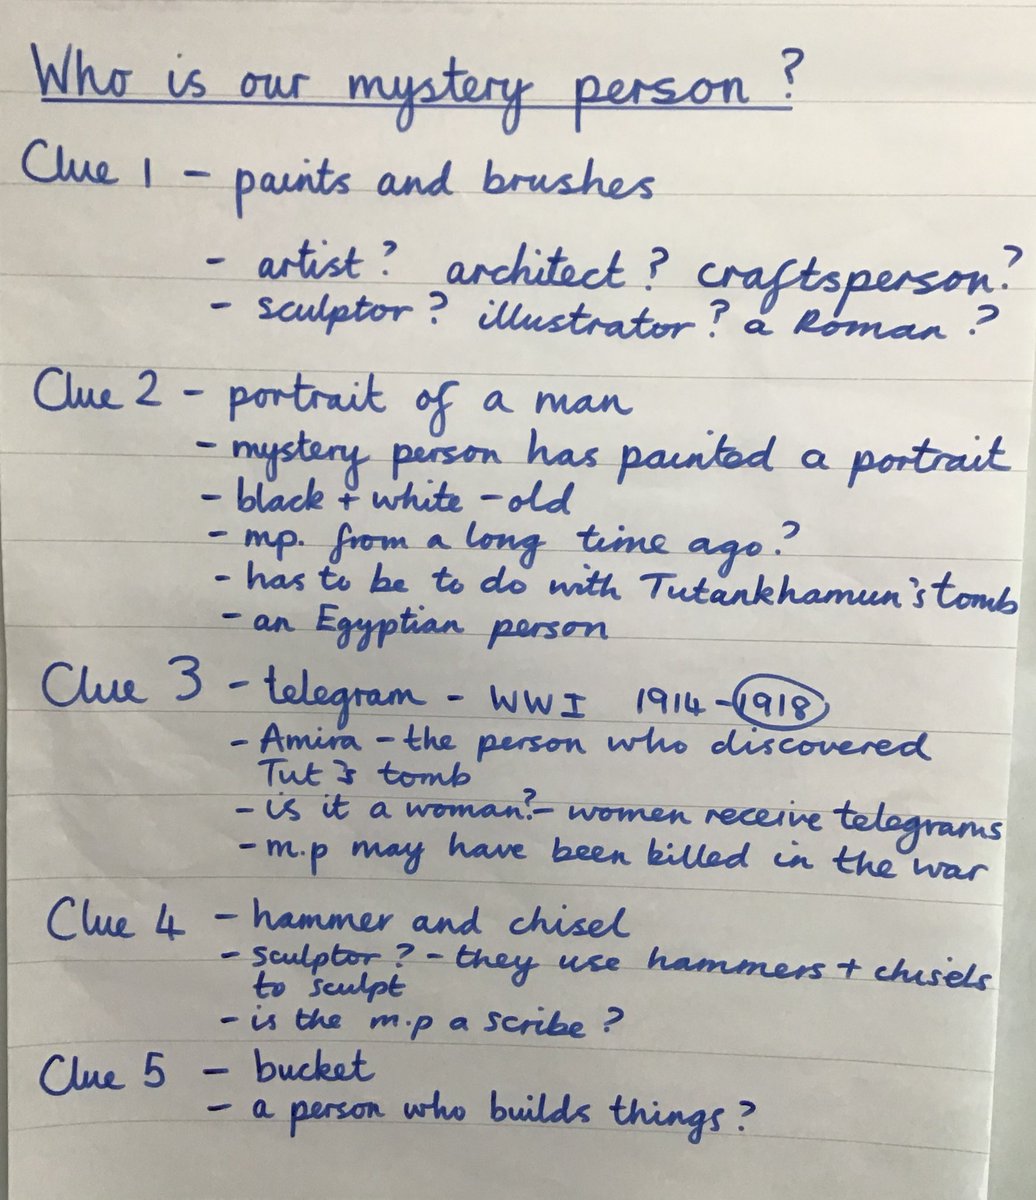 Who is our mystery person?
Clue 1 - paints and brushes
- artist? architect? craftsperson?
- sculptor? illustrator? a Roman?
Clue 2 - portrait of a man
- mystery person has painted a portrait
- black + white - old
- mp. from a long time ago?
- has to be to do with Tutankhamun's tomb
- an Egyptian person
Clue 3 - telegram - WWI 1914-1918
- Amira - the person who discovered
Tut's tomb
- is it a woman? - women receive telegrams
- m.p may have been killed in the war
Clue 4 - hammer and chisel
- sculptor? - they use hammers + chisels
to sculpt
- is the m.p a scribe?
Clue 5 - bucket
- a person who builds things?